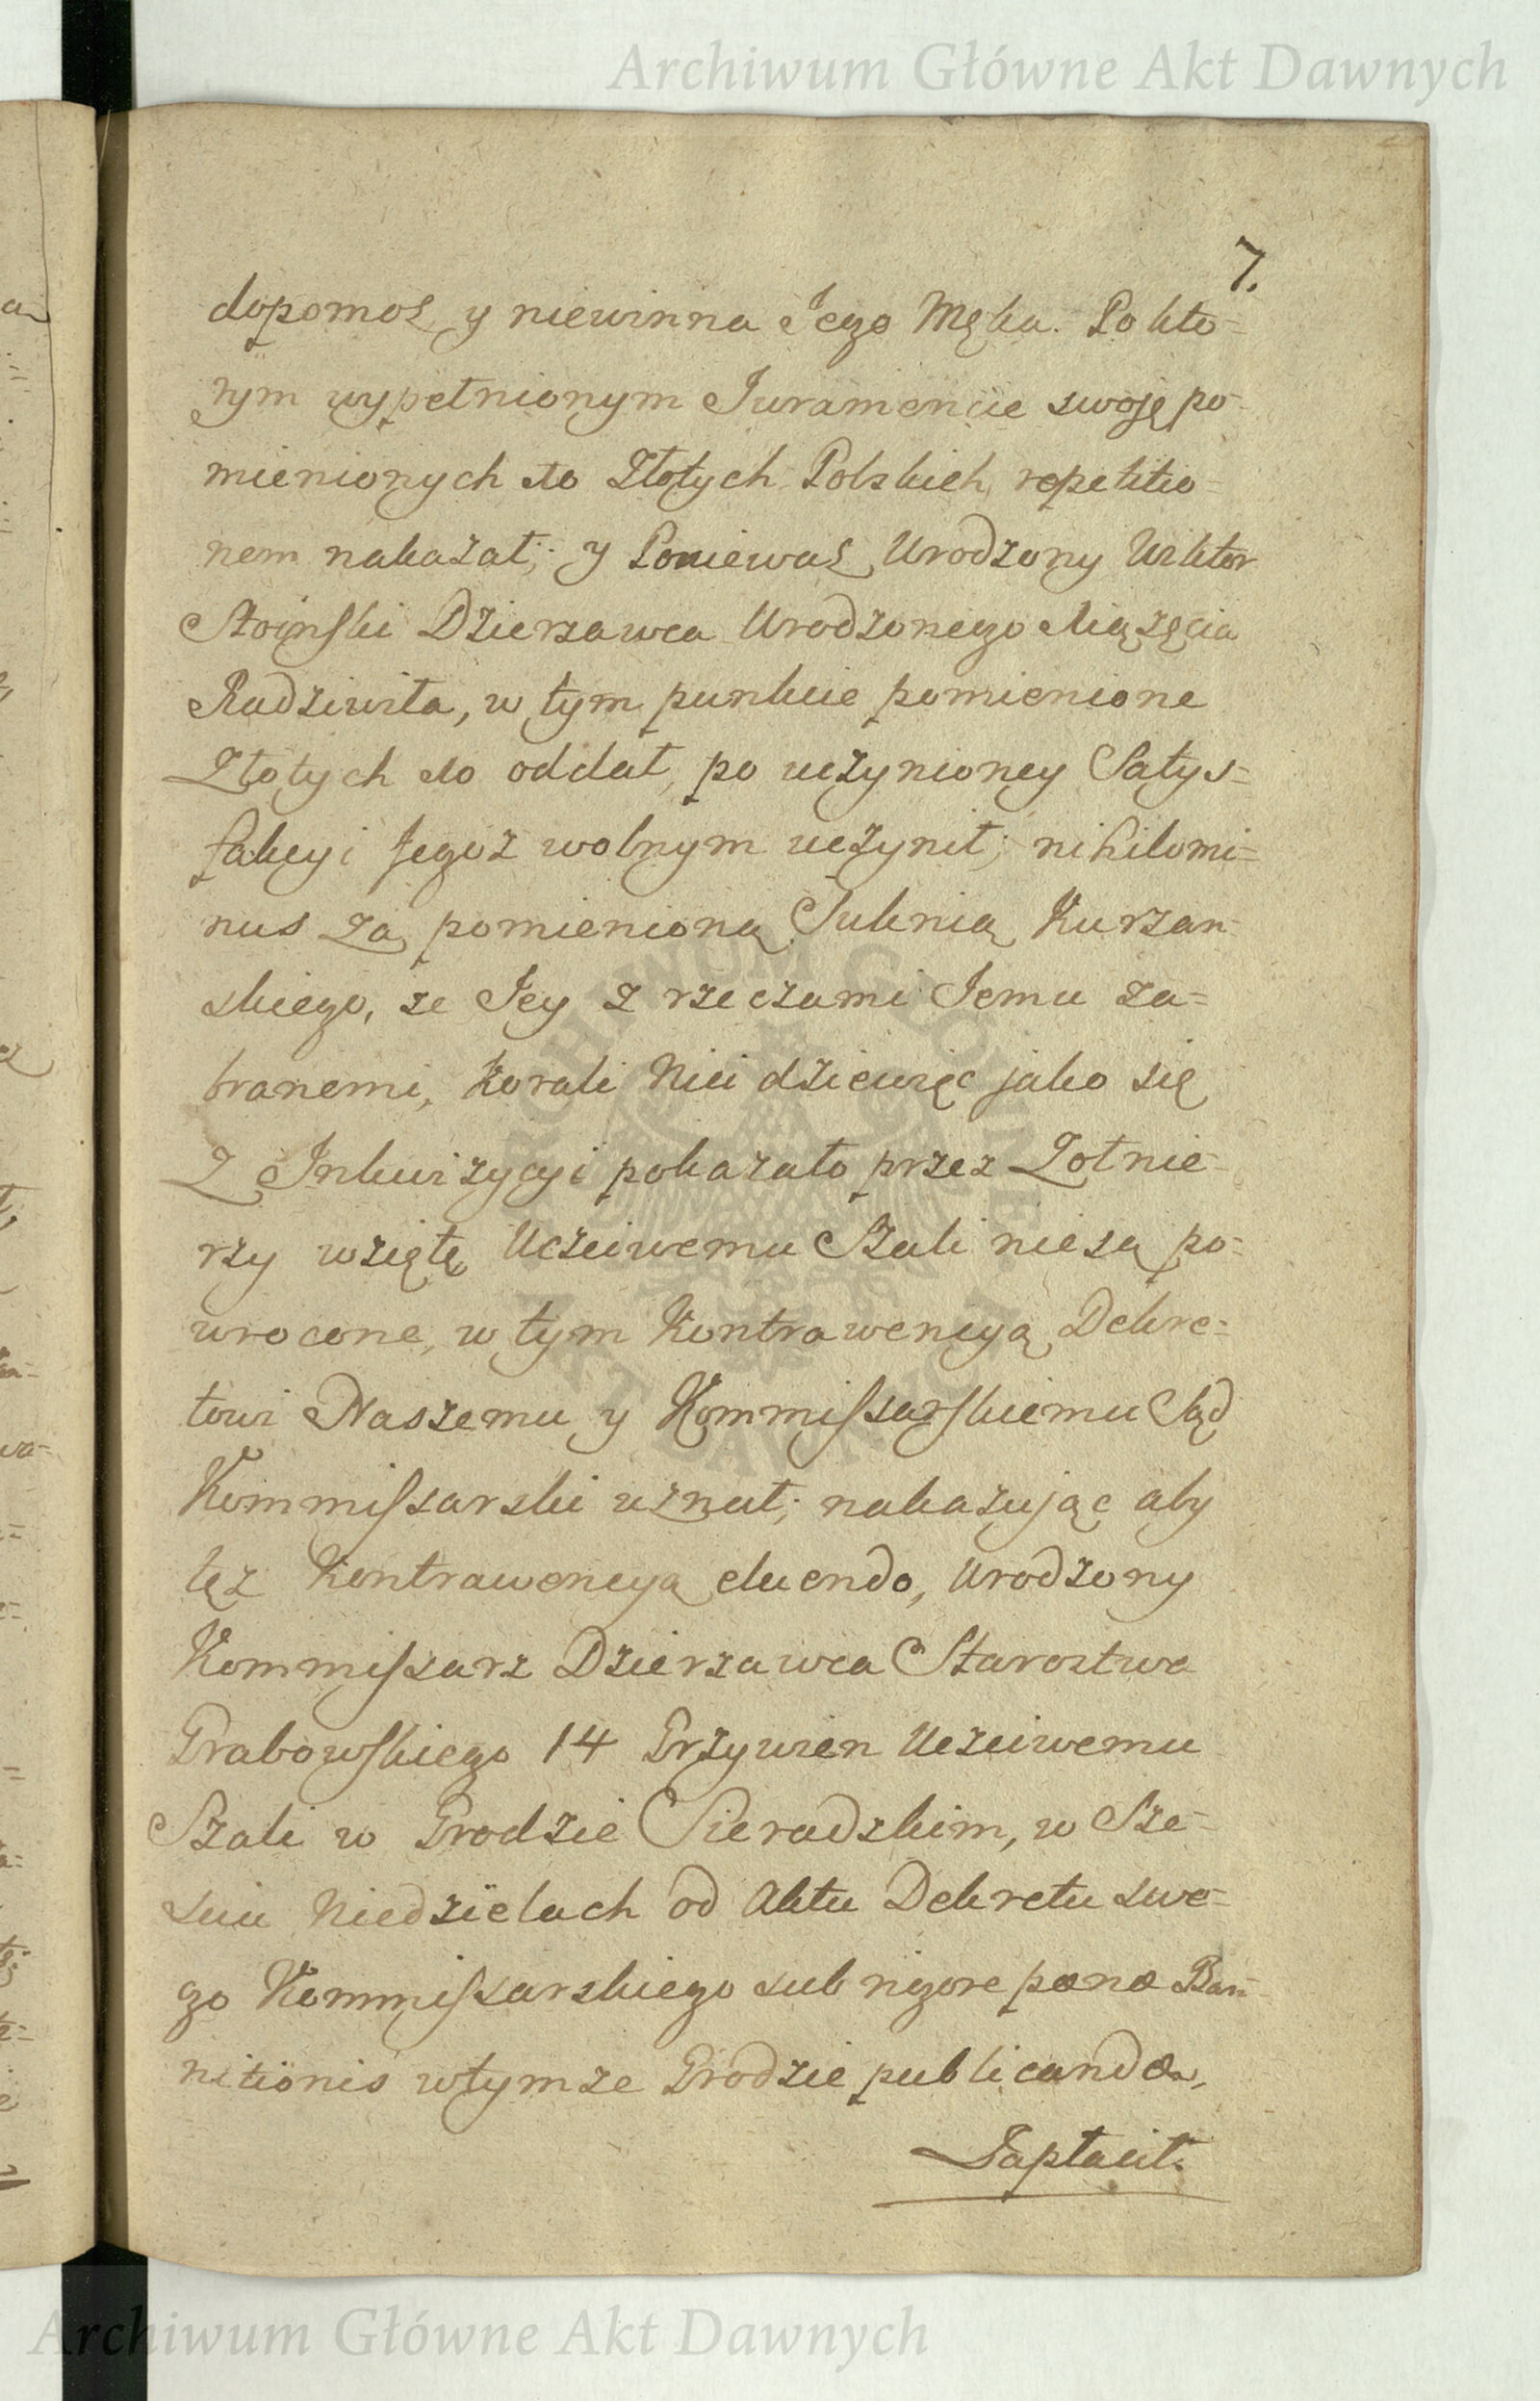 Archiwum Główne Akt Dawnych
7.
dopomoż y niewinna Jego Męka. Po kto=
rym wypełnionym Juramencie swoję po=
mienionych sto Złotych Polskich repetitio=
nem nakazał; y Ponieważ Urodzony Wiktor
Stoinski Dzierzawca Urodzonego Xiążęcia
Radziwiła, w tym punkcie pomienione
Złotych sto oddał, po uczynioney Satys=
fakcyi Jegoż wolnym uczynił; nihilomi=
nus Za pomienioną Suknią Kurzan=
skiego, że Jey z rzeczami Jemu za=
branemi, Korali Nici dziewięć jako się
Z Inkwizycyi pokazało przez Zołnie=
rzy wzięte Uczciwemu Szali nie są po=
wrocone, w tym Kontrawencyą Dekre=
towi Naszemu y Kommissarskiemu Sąd
Kommissarski uznał; nakazując aby
tęż Kontrawencyą eluendo, Urodzony
Kommissarz Dzierzawca Starostwa
Grabowskiego 14 Grzywien Uczciwemu
Szali w Grodzie Sieradzkim, w Sze=
sciu Niedzielach od Aktu Dekretu swe=
go Kommissarskiego sub rigore pœnæ Ban=
nitionis w tymze Grodzie publicandæ,
Zapłacił.
ARCHIWUM GŁÓWNE AKT DAWNYCH
Archiwum Główne Akt Dawnych